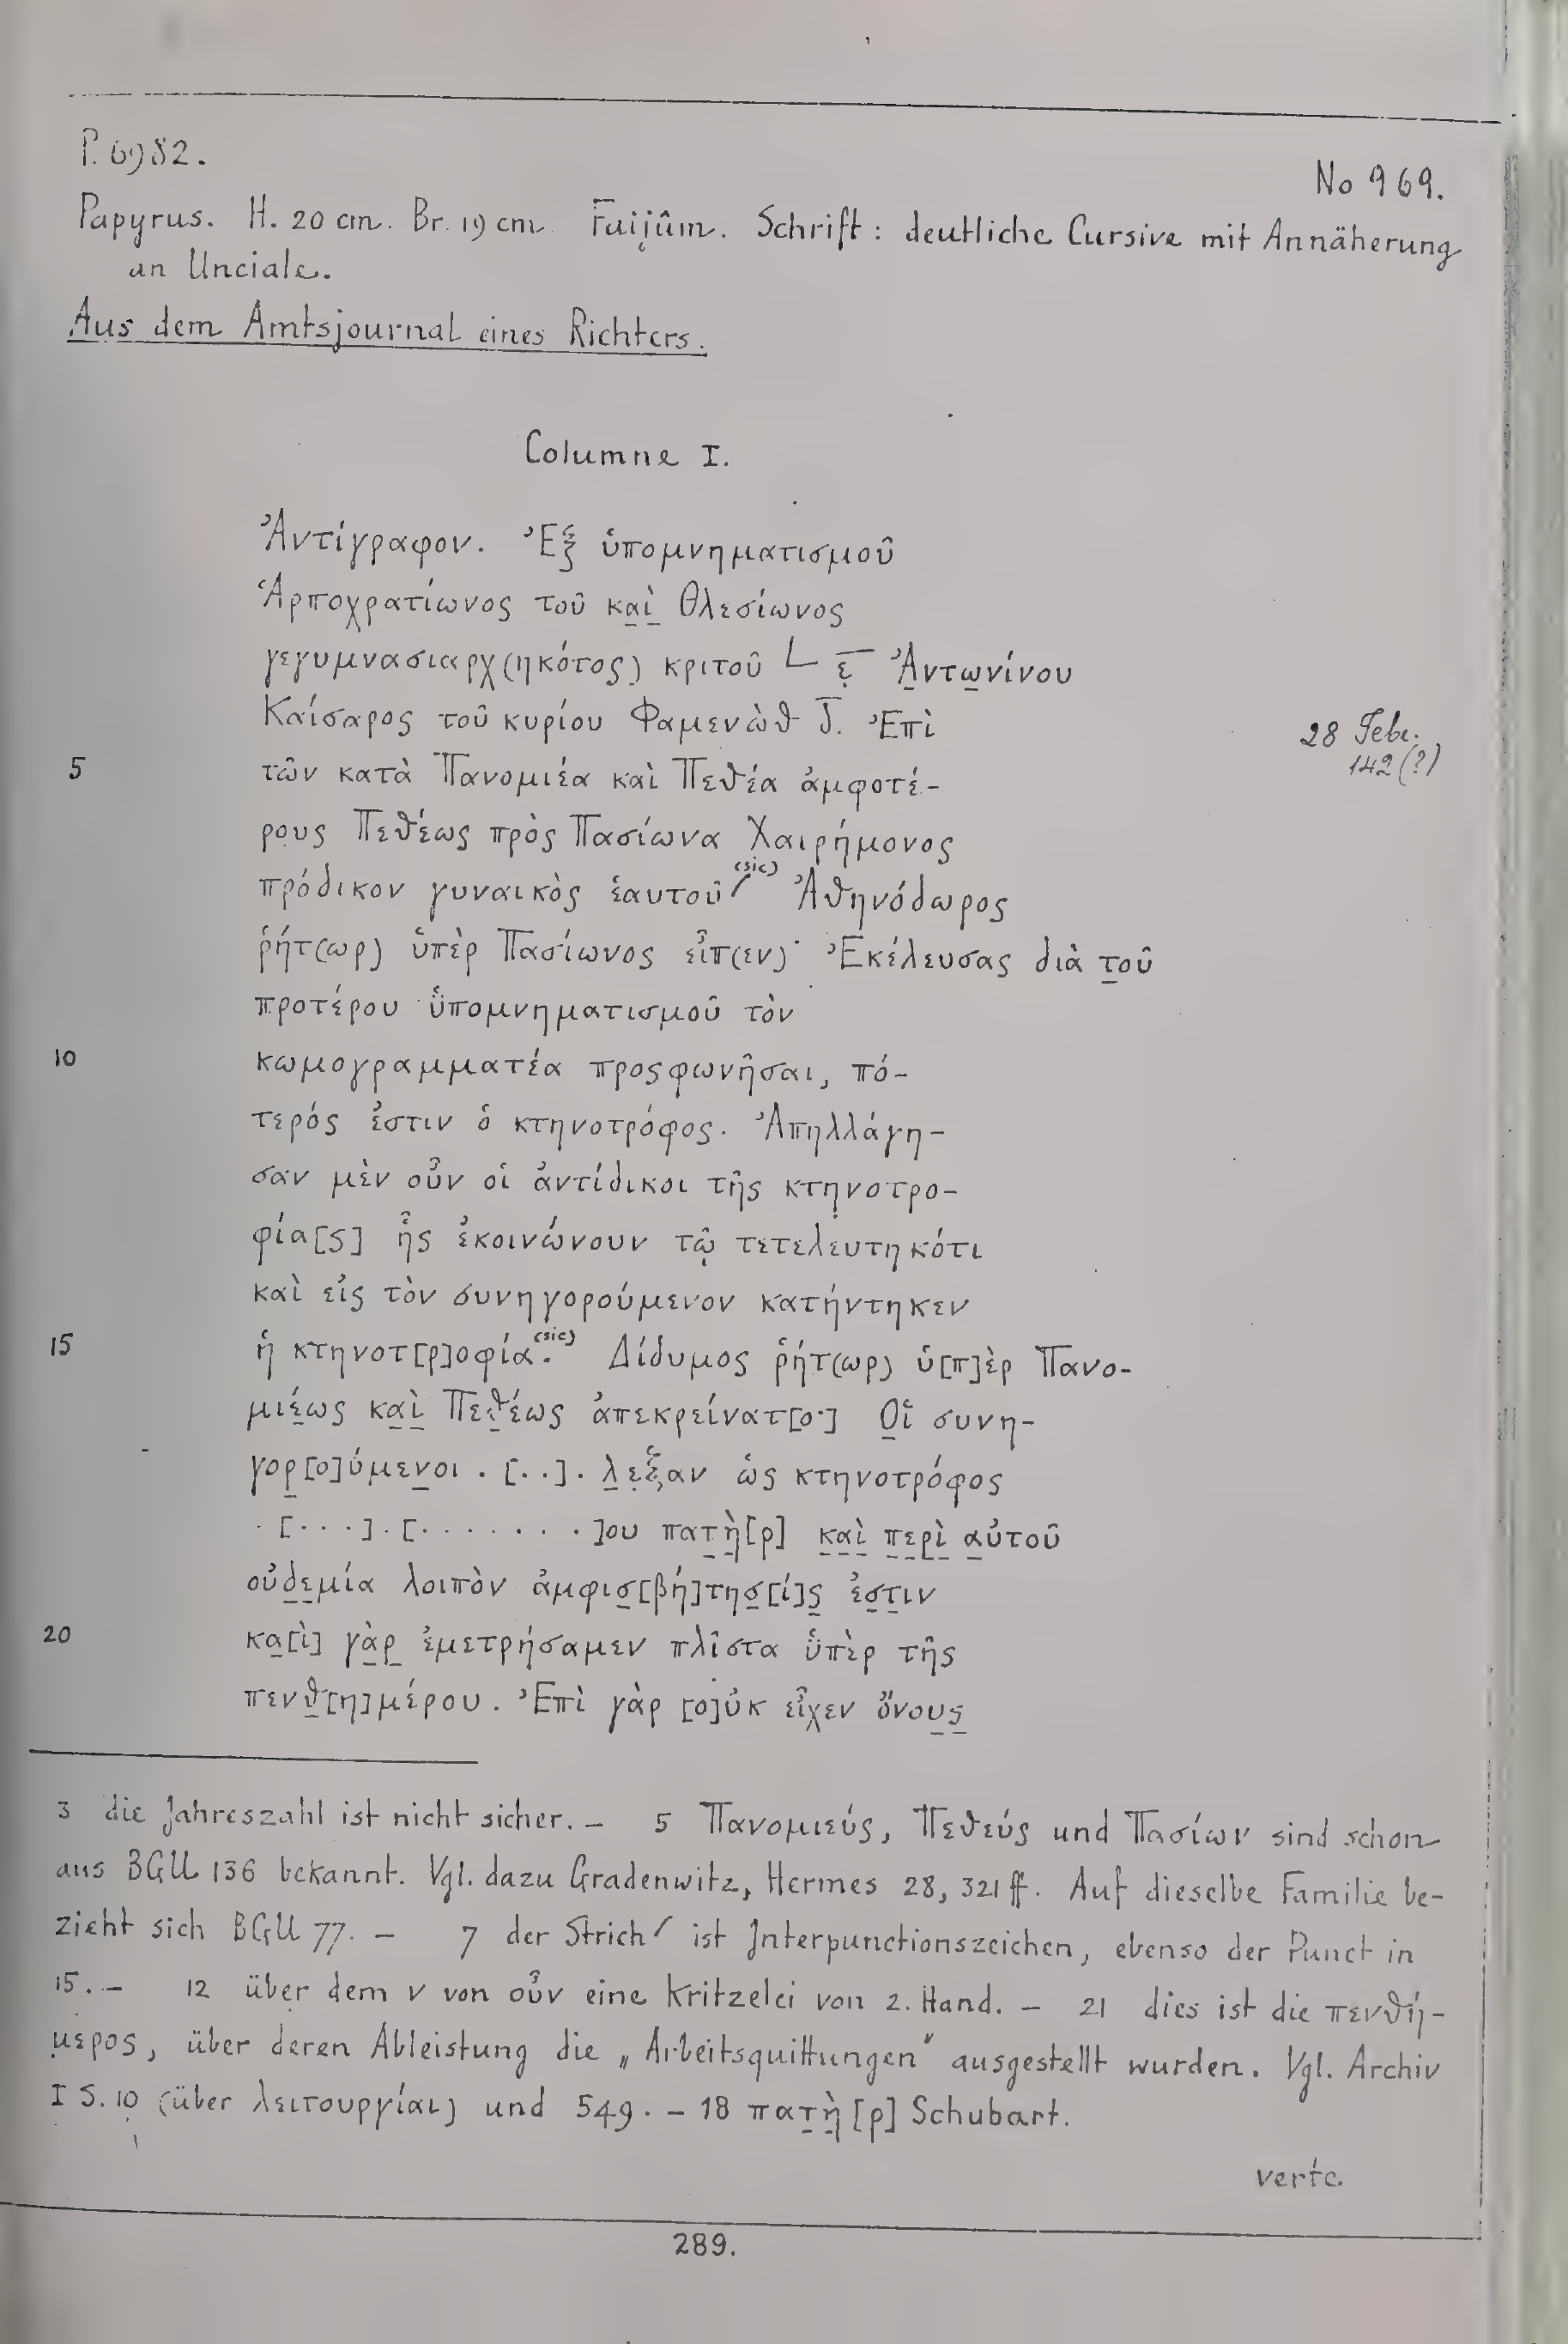 P. 6982.
No 969.
Papyrus. H. 20 cm. Br. 19 cm. Faijûm. Schrift: deutliche Cursive mit Annäherung
an Unciale.
Aus dem Amtsjournal eines Richters.
Columne I.
Ἀντίγραφον. Ἐξ ὑπομνηματισμοῦ
Ἁρποχρατίωνος τοῦ κα̣ὶ̣ Θλεσίωνος
γεγυμνασιαρχ(ηκότος) κριτοῦ L ε̣̅ Ἀ̣ντω̣νίνου
Καίσαρος τοῦ κυρίου Φαμενὼθ δ̅. Ἐπὶ
28 Febr.
142 (?)
5 τῶν κατὰ Πανομιέα καὶ Πεθέα ἀμφοτέ-
ρους Πεθέως πρὸς Πασίωνα Χαιρήμονος
πρόδικον γυναικὸς ἑαυτοῦ/ (sic) Ἀθηνόδωρος
ῥήτ(ωρ) ὑπὲρ Πασίωνος εἶπ(εν)· Ἐκέλευσας διὰ τ̣οῦ
προτέρου ὑπομνηματισμοῦ τὸν
10 κωμογραμματέα προςφωνῆσαι, πό-
τερός ἐστιν ὁ κτηνοτρόφος. Ἀπηλλάγη-
σαν μὲν οὖν οἱ ἀντίδικοι τῆς κτη̣νοτρο-
φία[ς] ἧς ἐκοινώνουν τῷ τετελευτηκότι
καὶ εἰς τὸν συνηγορούμενον κατήντηκεν
15 ἡ κτηνοτ[ρ]οφία. (sic) Δίδυμος ῥήτ(ωρ) ὑ[π]ὲρ Πανο-
μιέ̣ως κα̣ὶ̣ Πεθ̣έως ἀπεκρείνατ[ο·] Ο̣ἱ συνη-
γορ̣[ο]ύμεν̣οι . [..]. λ̣ε̣ξαν ὡς κτηνοτρόφος
. [...]. [........]ου πατ̣ὴ̣[ρ] κ̣α̣ὶ̣ π̣ε̣ρ̣ὶ̣ α̣ὐτοῦ
οὐδ̣ε̣μία λοιπὸν ἀμφισ̣[βή]τησ̣[ί]ς̣ ἐσ̣τ̣ιν
20 κα̣[ὶ] γὰ̣ρ̣ ἐμετρήσαμεν πλῖστα ὑπὲρ τῆς
πενθ̣[η]μέρου. Ἐπὶ γὰρ [ο]ὐκ εἶχεν ὄνου̣ς̣
3 die Jahreszahl ist nicht sicher. — 5 Πανομιεύς, Πεθεύς und Πασίων sind schon
aus BGU 136 bekannt. Vgl. dazu Gradenwitz, Hermes 28, 321 ff. Auf dieselbe Familie be-
zieht sich BGU 77. — 7 der Strich / ist Interpunctionszeichen, ebenso der Punct in
15. — 12 über dem ν von οὖν eine Kritzelei von 2. Hand. — 21 dies ist die πενθή-
μερος, über deren Ableistung die „Arbeitsquittungen" ausgestellt wurden. Vgl. Archiv
I S. 10 (über λειτουργίαι) und 549. — 18 πατ̣ὴ̣[ρ] Schubart.
verte.
289.